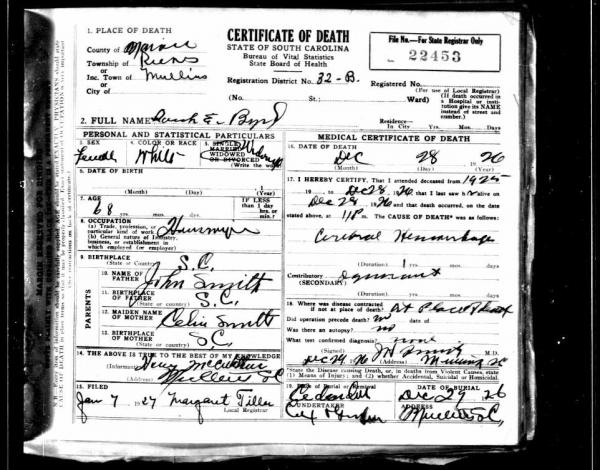 1. PLACE OF DEATH
County of Marion
Township of Reeves
or
Inc. Town of Mullins
or
City of
CERTIFICATE OF DEATH
STATE OF SOUTH CAROLINA
Bureau of Vital Statistics
State Board of Health
Registration District No. 32-B.
File No.—For State Registrar Only
22453
Registered No.
(For use of Local Registrar)
(No. St.; Ward)
(If death occurred in
a Hospital or insti-
tution give its NAME
instead of street and
number.)
2. FULL NAME E. Byrd
Residence—
In City Yrs. Mos. Days
PERSONAL AND STATISTICAL PARTICULARS
3. SEX
Female
4. COLOR OR RACE
White
5. SINGLE
MARRIED
WIDOWED
OR DIVORCED
(Write the word)
6. DATE OF BIRTH
(Month) (Day) (Year)
7. AGE
68 yrs. mos. ds.
IF LESS
than 1 day
hrs.
or min.
8. OCCUPATION
(a) Trade, profession, or
particular kind of work
(b) General nature of Industry,
business, or establishment in
which employed (or employer)
9. BIRTHPLACE
(State or Country) S.C.
PARENTS
10. NAME OF
FATHER John Smith
11. BIRTHPLACE
OF FATHER
(State or country) S.C.
12. MAIDEN NAME
OF MOTHER Celia Smith
13. BIRTHPLACE
OF MOTHER
(State or country) S.C.
14. THE ABOVE IS TRUE TO THE BEST OF MY KNOWLEDGE
(Informant)
(Address) Mullins SC
15. FILED
Jan 7 1927 Margaret Tiller
Local Registrar
MEDICAL CERTIFICATE OF DEATH
16. DATE OF DEATH
Dec 28 1926
(Month) (Day) (Year)
17. I HEREBY CERTIFY, That I attended deceased from 1925
19 to Dec 28, 26 that I last saw h alive on
Dec 28 1926 and that death occurred, on the date
stated above, at 11 P m. The CAUSE OF DEATH* was as follows:
Cerebral Hemorrhage
(Duration) 1 yrs. mos. days
Contributory
(SECONDARY)
(Duration) yrs. mos. days
18. Where was disease contracted
if not at place of death? At Place of Death
Did operation precede death? no date of
Was there an autopsy? no
What test confirmed diagnosis? none
(Signed) M.D.
Dec 29 1926 (Address) Mullins SC
*State the Disease causing Death, or, in deaths from Violent Causes, state
(1) Means of Injury; and (2) whether Accidental, Suicidal or Homicidal.
19. Place of Burial or Removal
DATE OF BURIAL
Dec 29 26
UNDERTAKER
ADDRESS
Mullins S.C.